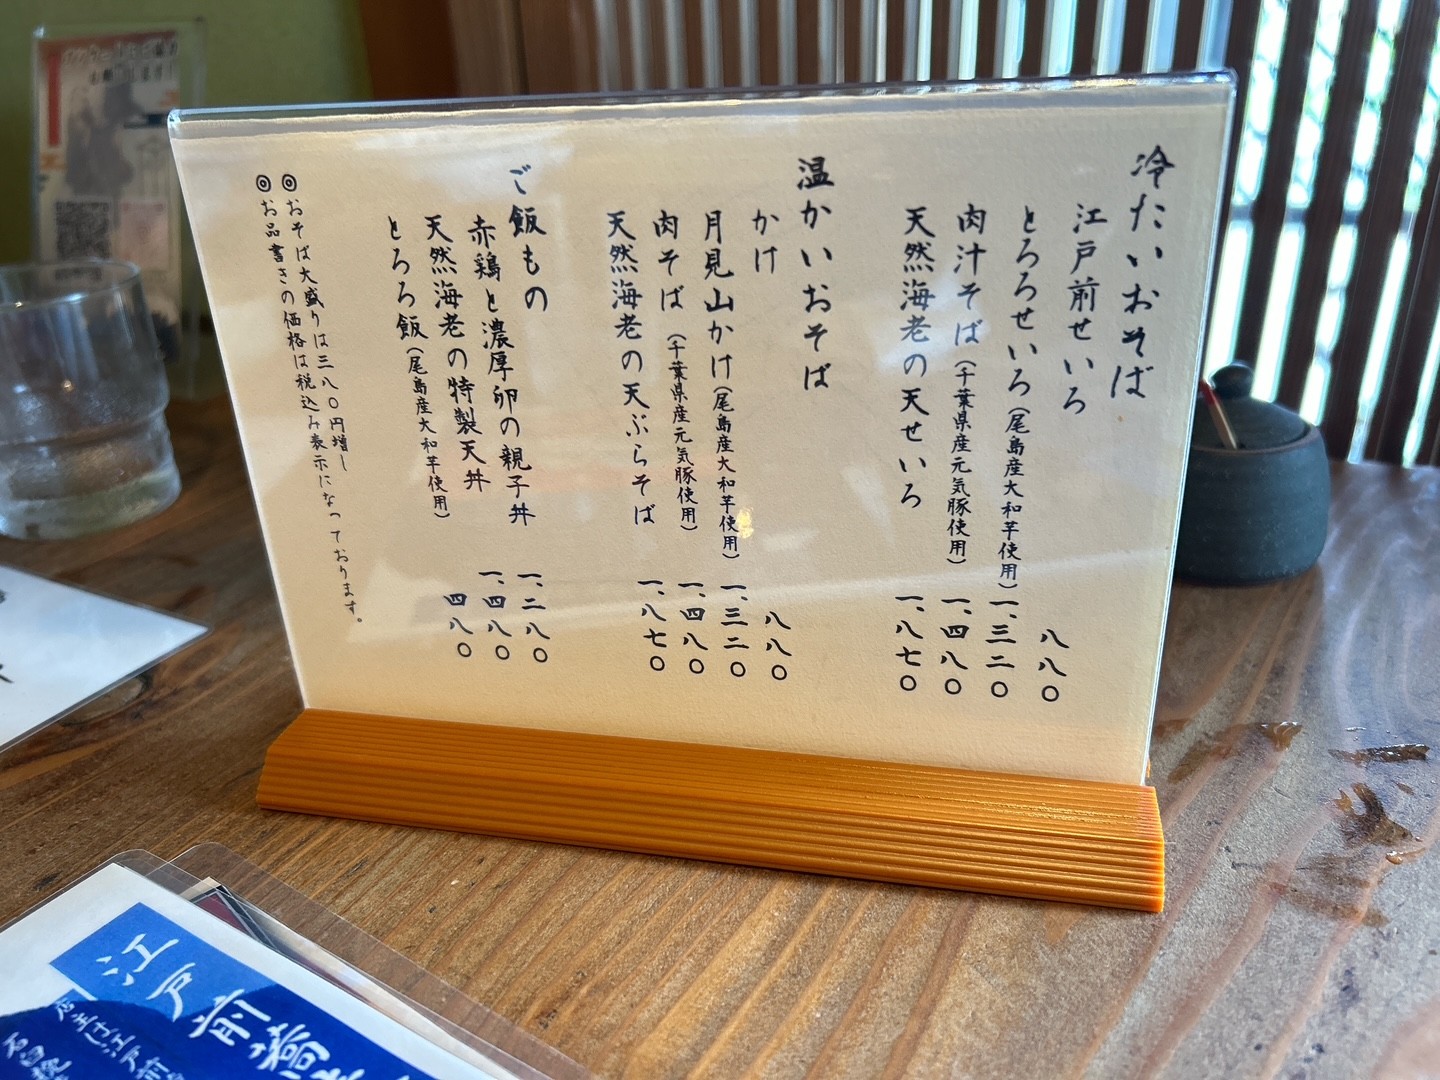 冷たいおそば
江戸前せいろ 八八〇
とろろせいろ(尾島産大和芋使用) 一、三二〇
肉汁そば(千葉県産元気豚使用) 一、四八〇
天然海老の天せいろ 一、八七〇
温かいおそば
かけ 八八〇
月見山かけ(尾島産大和芋使用) 一、三二〇
肉そば(千葉県産元気豚使用) 一、四八〇
天然海老の天ぷらそば 一、八七〇
ご飯もの
赤鶏と濃厚卵の親子丼 一、二八〇
天然海老の特製天丼 一、四八〇
とろろ飯(尾島産大和芋使用) 四八〇
◎おそば大盛りは三八〇円増し
◎お品書きの価格は税込み表示になっております。
江戸前蕎
店主は江戸前
石臼